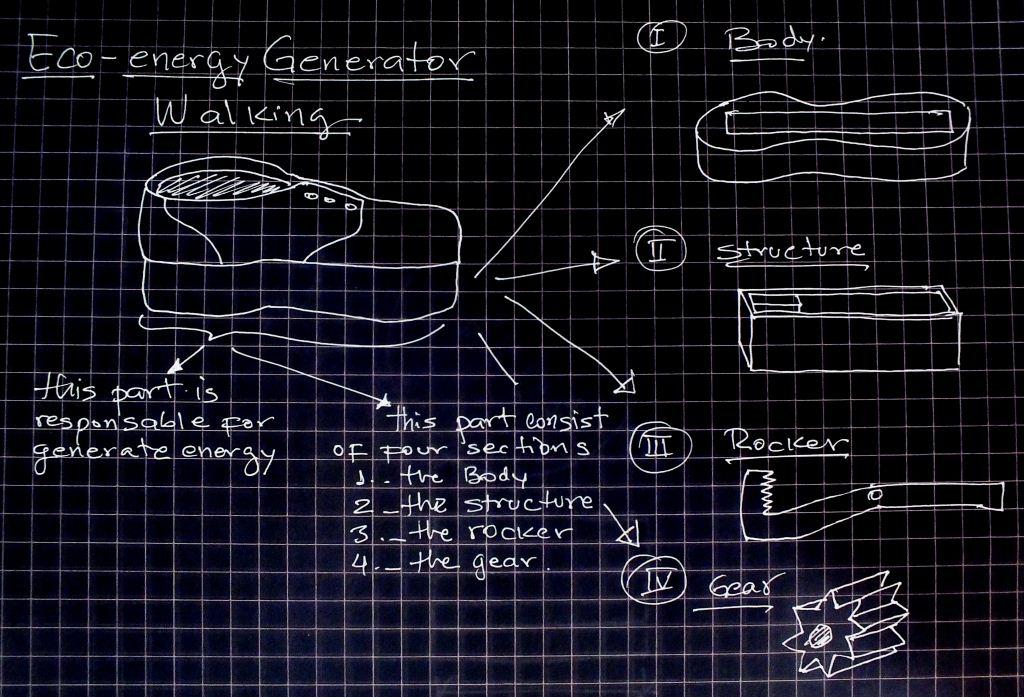 Eco-energy Generator
Walking
this part is
responsable for
generate energy
this part consist
of four sections
1.- the Body
2 - the structure
3.- the rocker
4.- the gear.
I Body.
II structure
III Rocker
IV Gear